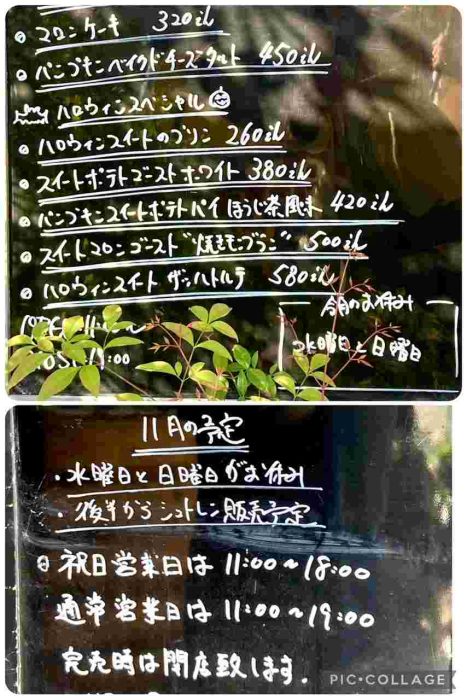 マロンケーキ 320yen
パンプキンベイクドチーズタルト 450yen
ハロウィンスペシャル
ハロウィンスイートのプリン 260yen
スイートポテトゴーストホワイト 380yen
パンプキンスイートポテトパイ ほうじ茶風味 420yen
スイートマロンゴースト "焼きモンブラン" 500yen
ハロウィンスイート ザッハトルテ 580yen
今月のお休み
水曜日と日曜日
19:00
11月の予定
・水曜日と日曜日がお休み
・後半からシュトレン販売予定
祝日営業日は 11:00〜18:00
通常営業日は 11:00〜19:00
完売時は閉店致します.
PIC•COLLAGE